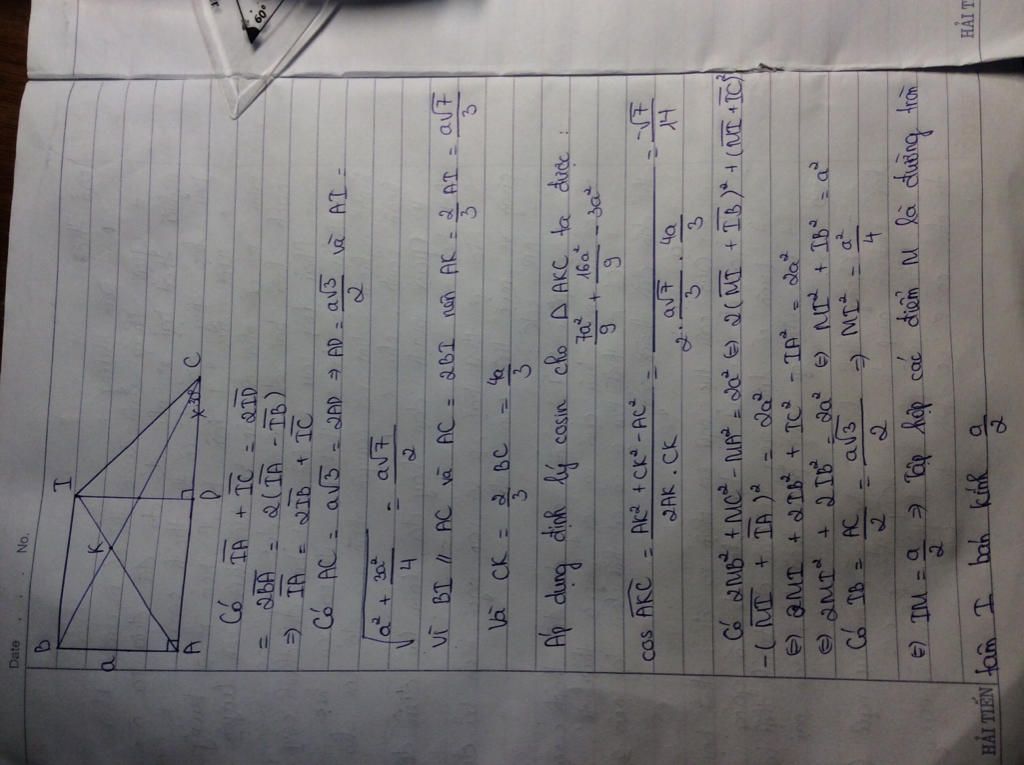 Date No.
B I
K
a
A D C
x 30°
Có IA + IC = 2ID
= 2BA = 2(IA - IB)
⇒ IA = 2IB + IC
Có AC = a√3 = 2AD ⇒ AD = a√3/2 và AI =
√(a² + 3a²/4) = a√7/2
Vì BI // AC và AC = 2BI nên AK = 2/3 AI = a√7/3
Và CK = 2/3 BC = 4a/3
Áp dụng định lý cosin cho Δ AKC ta được :
cos AKC = (AK² + CK² - AC²)/(2AK . CK) = (7a²/9 + 16a²/9 - 3a²)/(2 . a√7/3 . 4a/3) = -√7/14
Có 2MB² + MC² - MA² = 2a² ⇔ 2(MI + IB)² + (MI + IC)²
-(MI + IA)² = 2a²
⇔ 2MI + 2IB² + IC² - IA² = 2a²
⇔ 2MI² + 2IB² = 2a² ⇔ MI² + IB² = a²
Có IB = AC/2 = a√3/2 ⇒ MI² = a²/4
⇔ IM = a/2 ⇒ Tập hợp các điểm M là đường tròn
tâm I bán kính a/2
HẢI TIẾN
HẢI T
60°